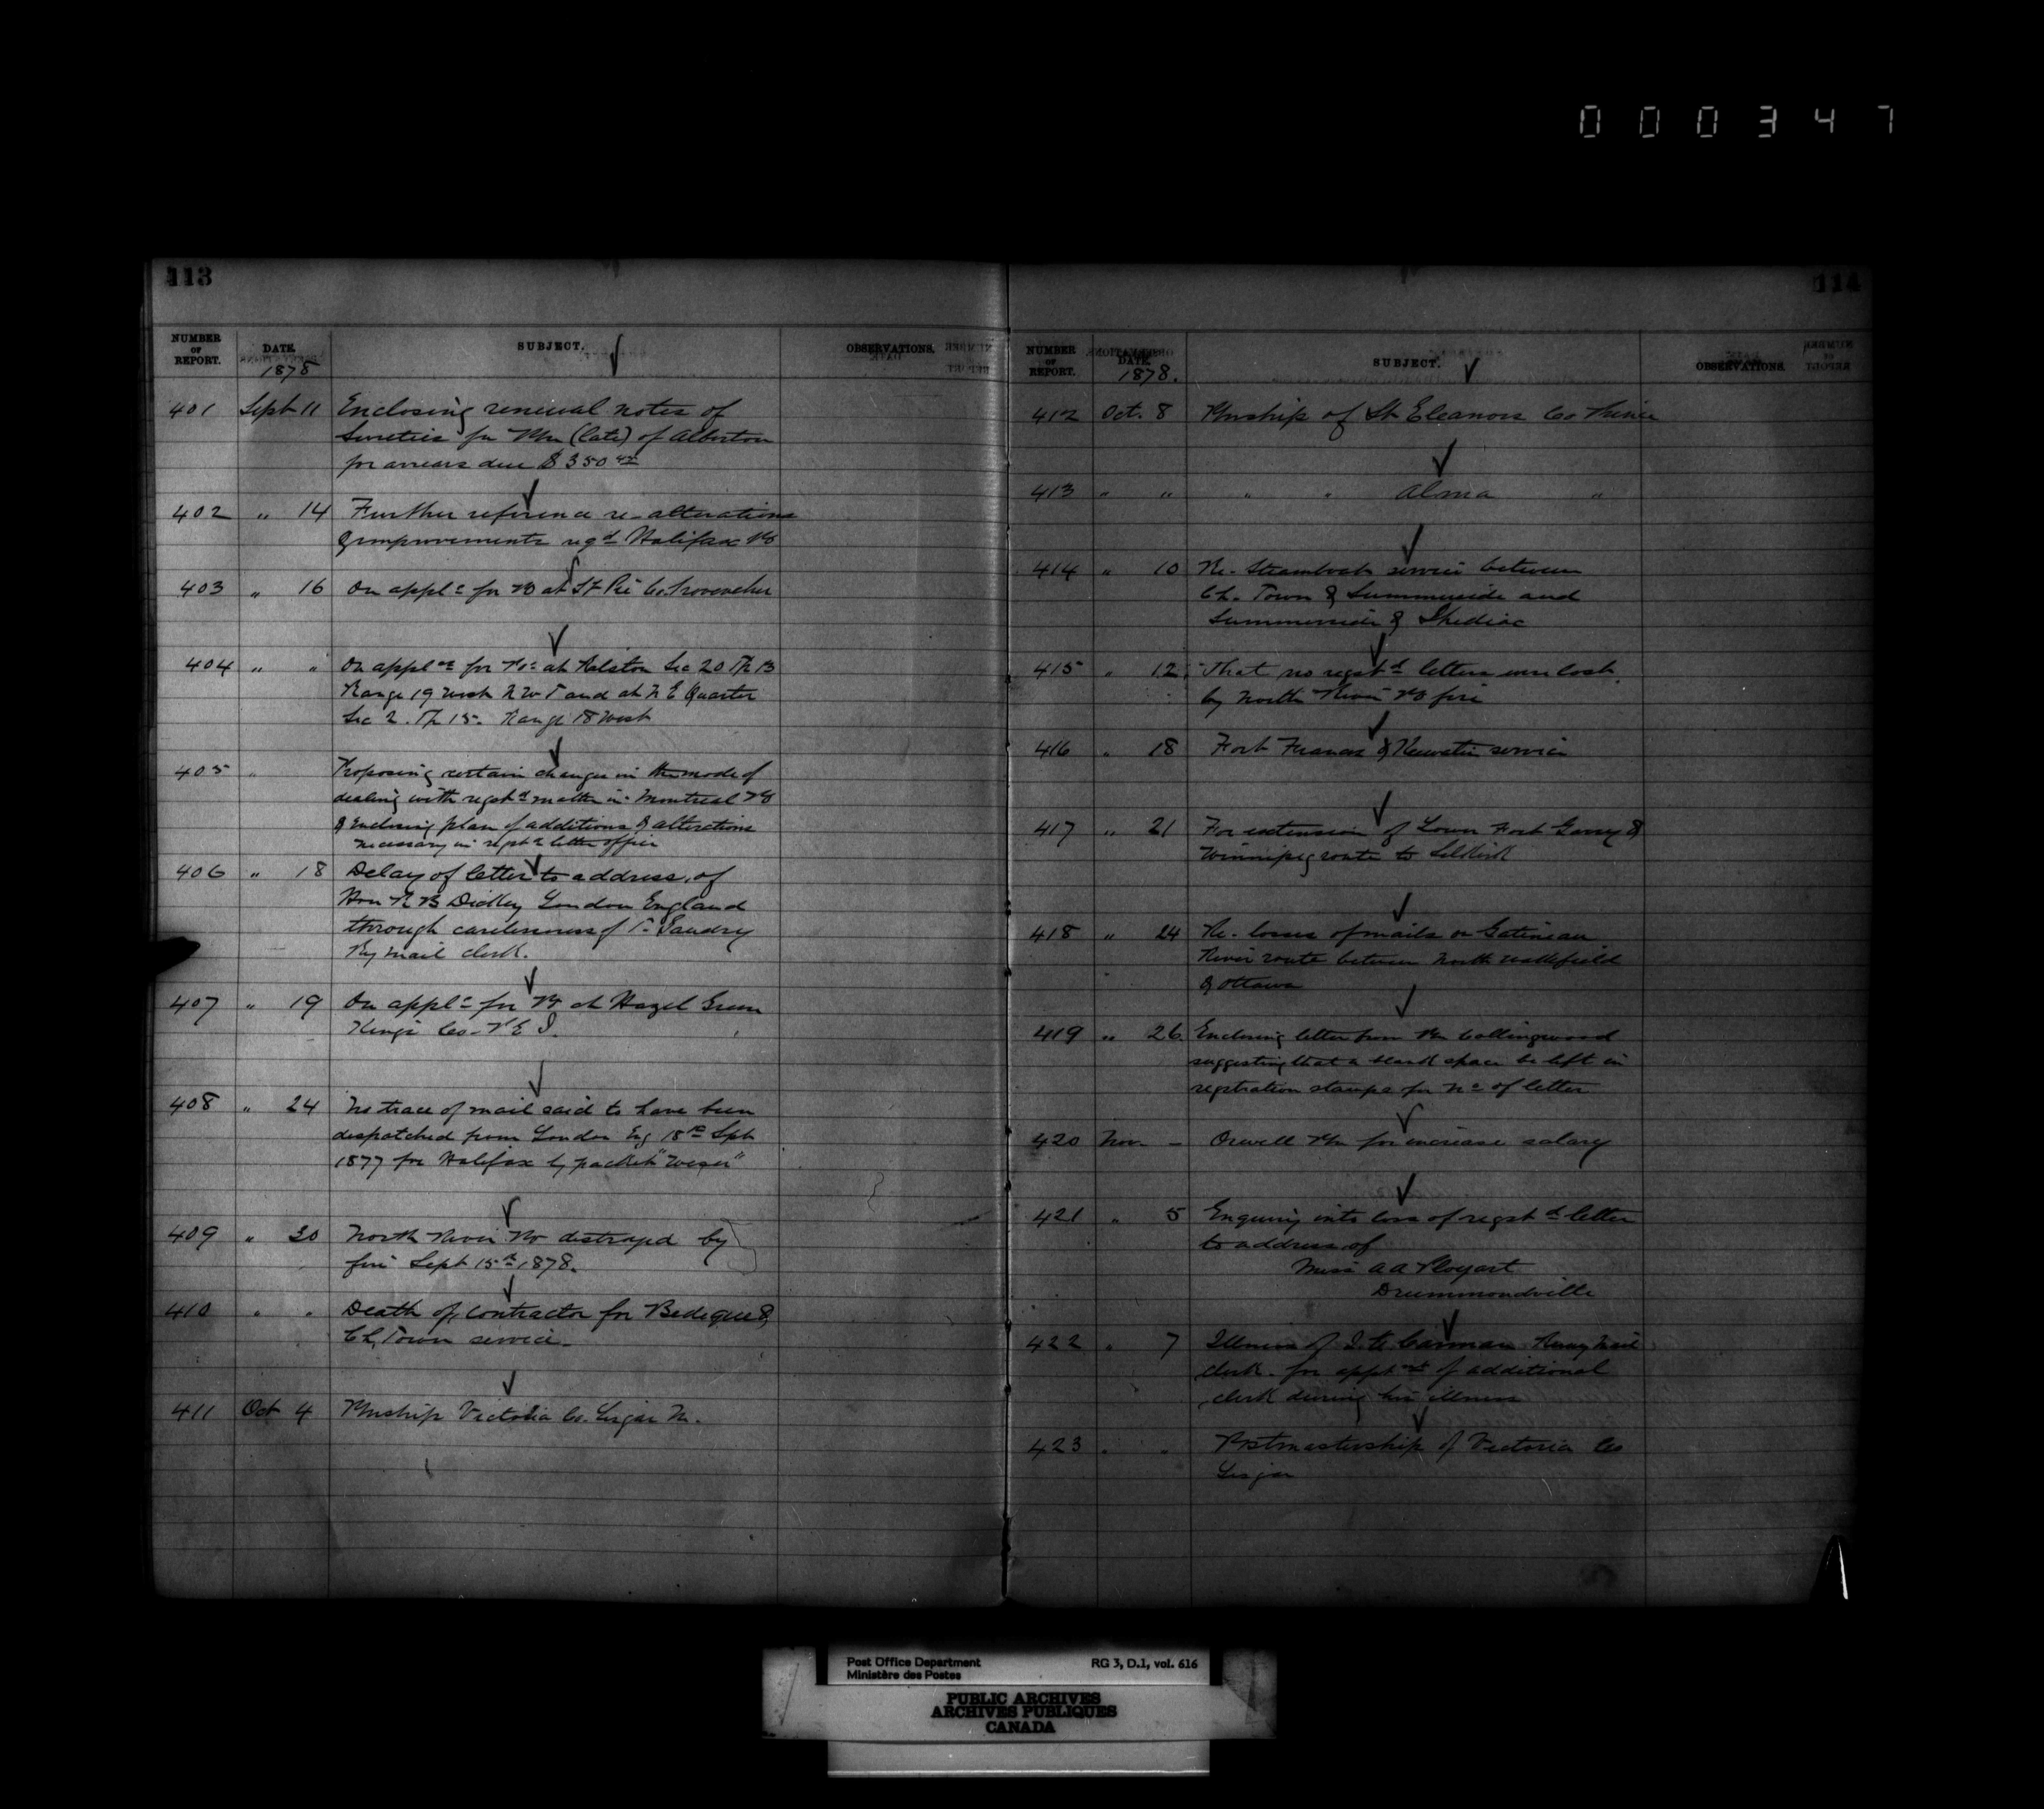 000347
113
NUMBER OF REPORT. DATE. SUBJECT. OBSERVATIONS.
1878
401 Sept 11 Enclosing renewal notes of
Sureties for PM (late) of Alberton
for arrears due $350
402 " 14 Further reference re-alterations
& improvements reqd Halifax PO
403 " 16 On appln for PO at St Pie Co. Provencher
404 " " On appln for POs at Ralston Sec 20 Tp 13
Range 19 West N W T and at N E Quarter
Sec 2. Tp 15. Range 18 West
405 " Proposing certain changes in the mode of
dealing with regstd matter in Montreal PO
& Enclosing plan of additions & alterations
necessary in regstd letter office
406 " 18 Delay of letter to address of
Hon R B Dickey London England
through carelessness of
Ry mail clerk.
407 " 19 On appln for PO at Hazel Green
Kings Co. P E I.
408 " 24 No trace of mail said to have been
despatched from London Eng 18th Sept
1877 for Halifax by packet "Weser"
409 " 30 North River PO destroyed by
fire Sept 15th 1878.
410 " " Death of contractor for Bedeque &
Ch. Town service.
411 Oct 4 PMship Victoria Co. Lisgar M.
114
NUMBER OF REPORT. DATE. SUBJECT. OBSERVATIONS.
1878.
412 Oct. 8 PMship of St Eleanors Co Prince
413 " " " " Alma "
414 " 10 Re. Steamboat service between
Ch. Town & Summerside and
Summerside & Shediac
415 " 12 That no regstd letters were lost
by North River PO fire
416 " 18 Fort Frances & Keewatin service
417 " 21 For extension of Lower Fort Garry &
Winnipeg route to Selkirk
418 " 24 Re. losses of mails on Gatineau
River route between North Wakefield
& Ottawa
419 " 26 Enclosing letter from PM Collingwood
suggesting that a blank space be left in
registration stamps for No of letter
420 Nov. - Orwell PM for increase salary
421 " 5 Enquiry into loss of regstd letter
to address of
Miss A A
Drummondville
422 " 7 Illness of Carman Railway Mail
clerk. for apptmt of additional
clerk during his illness
423 " " Postmastership of Victoria Co
Lisgar
Post Office Department
Ministère des Postes
RG 3, D.1, vol. 616
PUBLIC ARCHIVES
ARCHIVES PUBLIQUES
CANADA